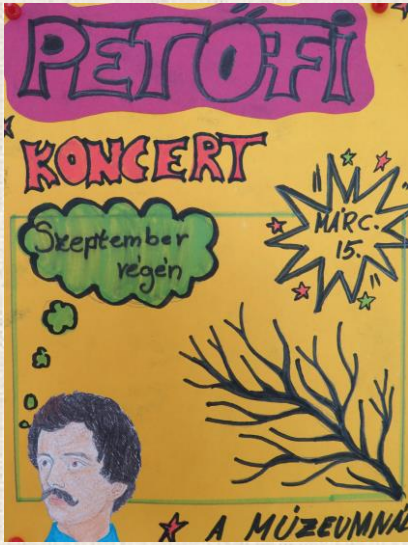 PETŐFI
KONCERT
Szeptember
végén
"MÁRC.
15."
A MÚZEUMNÁ